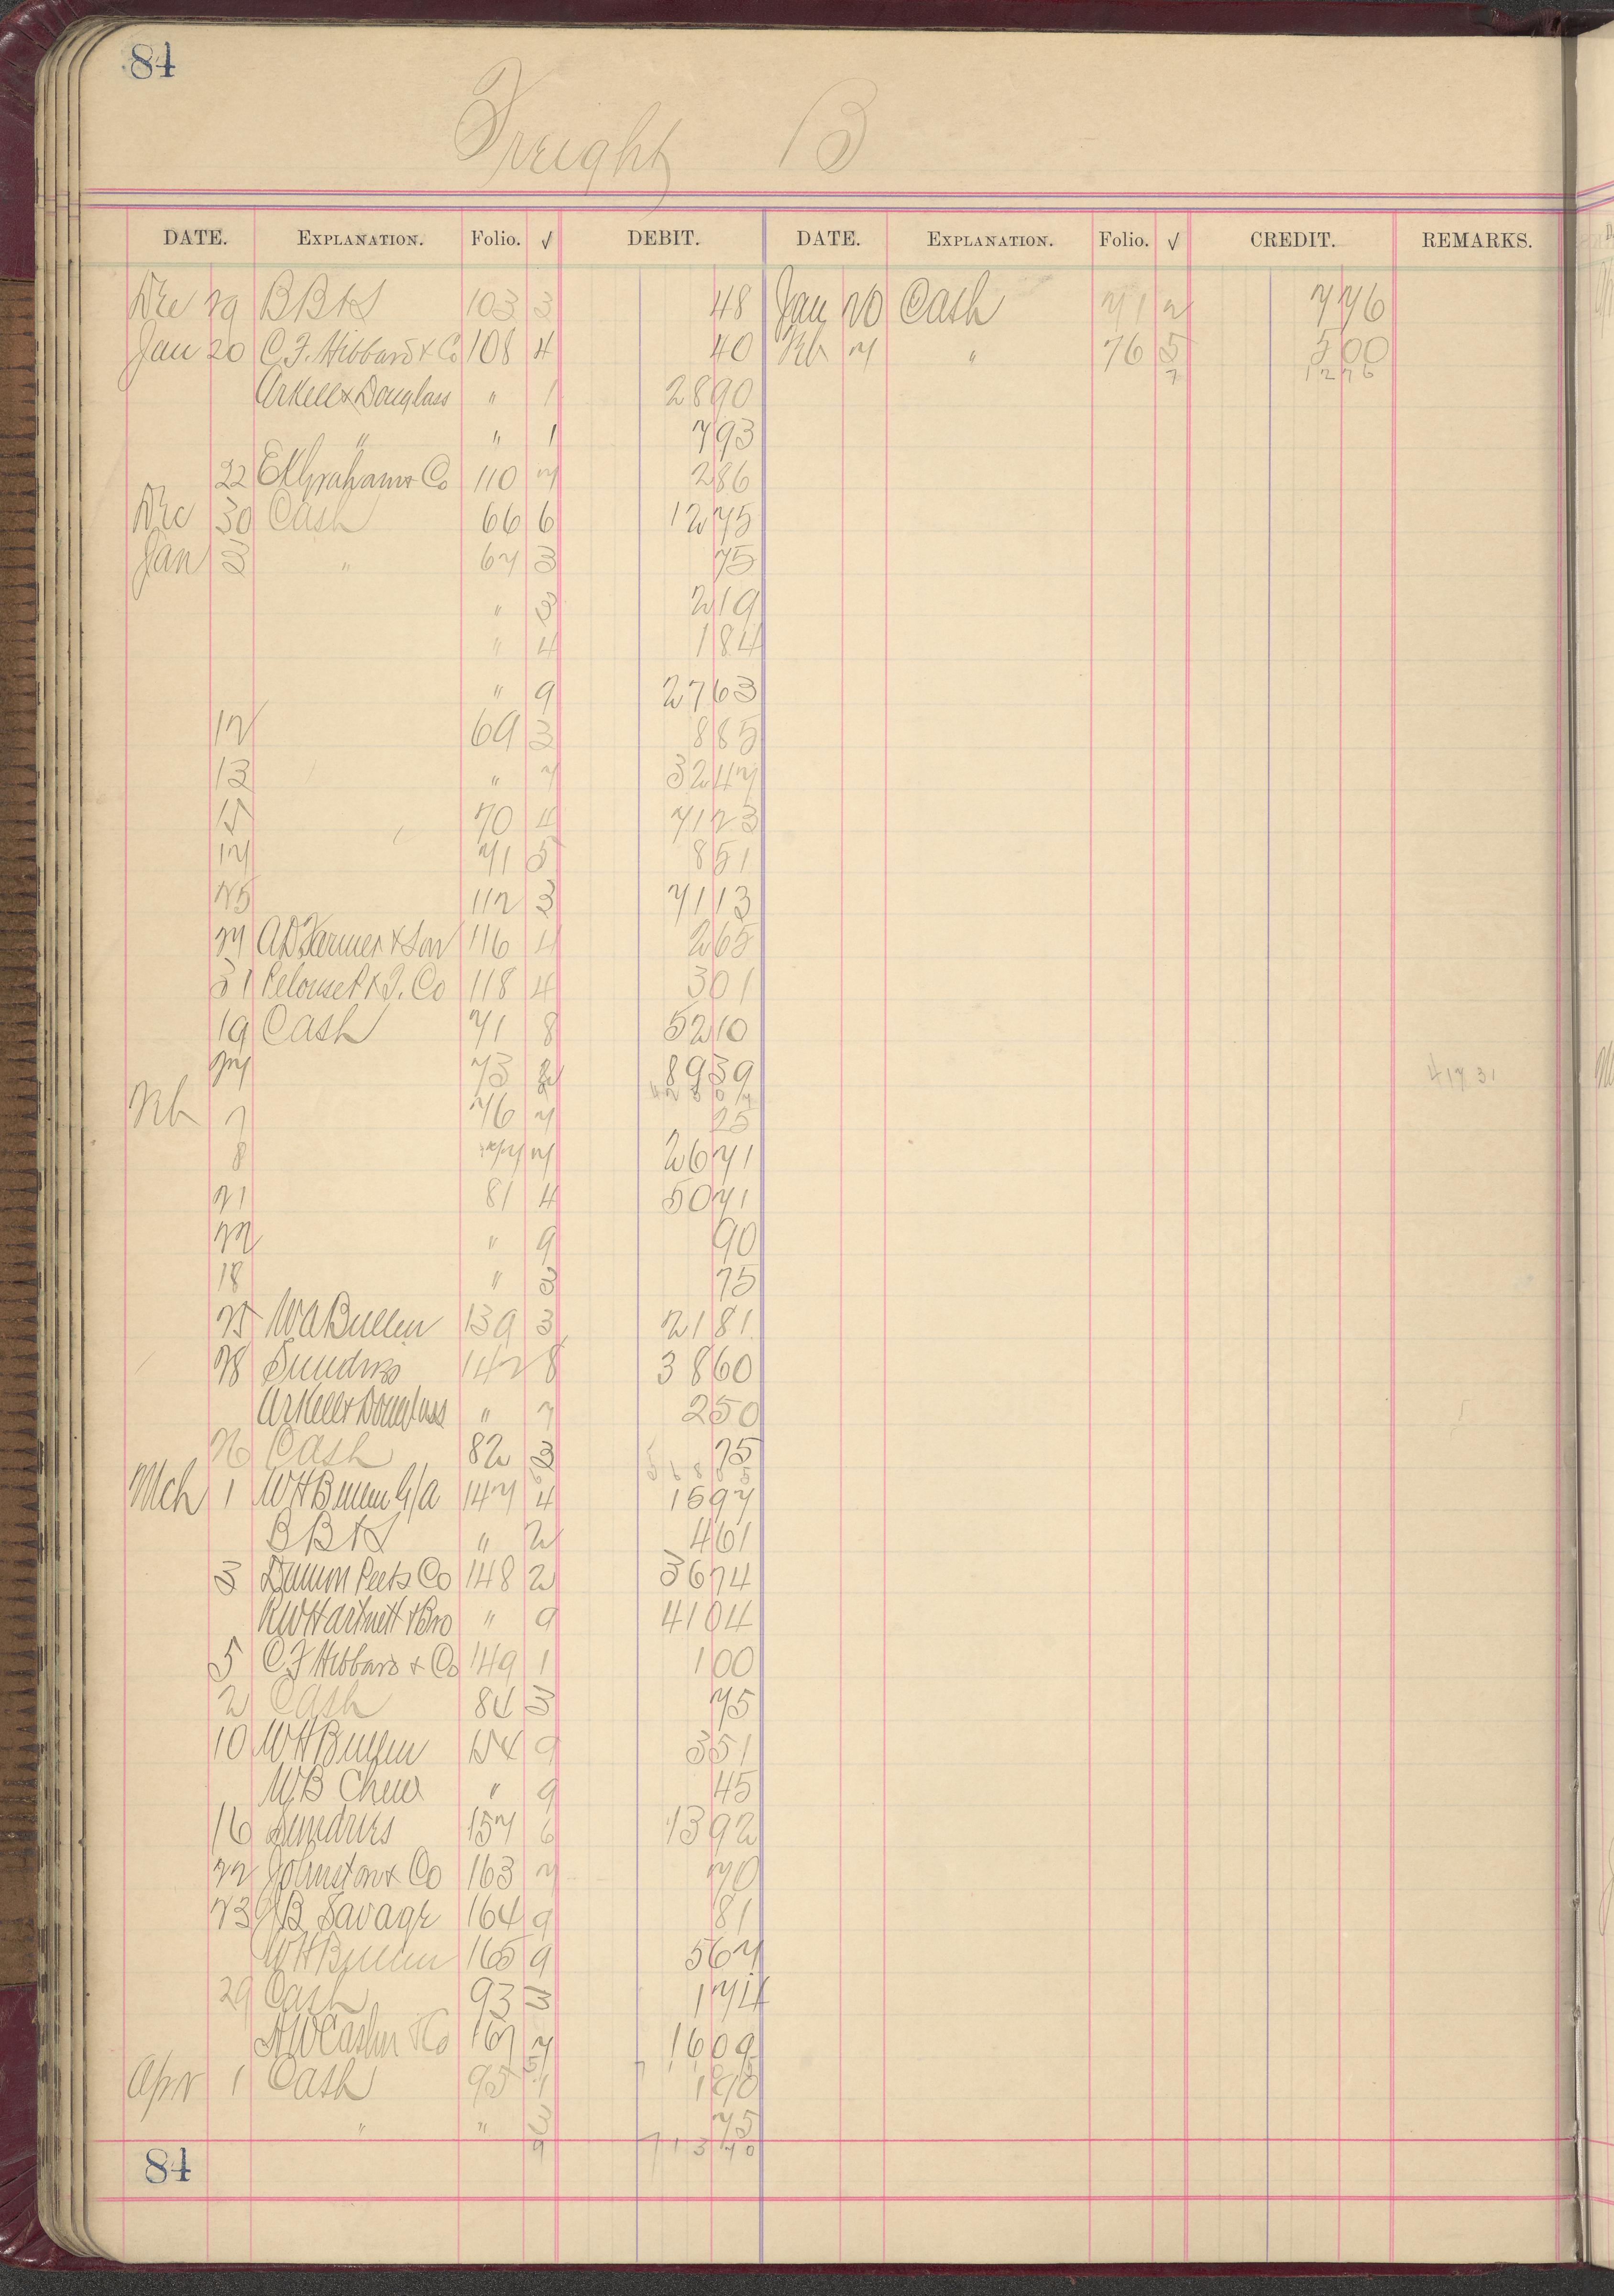 84
Freight B
DATE. EXPLANATION. Folio. √ DEBIT. DATE. EXPLANATION. Folio. √ CREDIT. REMARKS.
Dec 29 BB&S 103 3 48 Jan 20 Cash 71 2 7 76
Jan 20 C.F. Hibbard & Co 108 4 40 Feb 7 " 76 5 5 00
7 12 76
Arkell & Douglass " 1 28 90
" " 1 7 93
22 Graham & Co 110 7 2 86
Dec 30 Cash 66 6 12 75
Jan 3 " 67 3 75
" 3 2 19
" 4 1 84
" 9 27 63
12 69 3 8 85
13 " 7 32 47
15 70 4 71 23
17 71 5 8 51
25 112 3 71 13
27 A D Farmer & Son 116 4 2 65
31 & Co 118 4 3 01
19 Cash 71 8 52 10
27 73 2 89 39
Feb 7 76 7 25
8 77 7 26 71
21 81 4 50 71
22 " 9 90
18 " 3 75
25 W A Bullen 139 3 21 81
28 Sundries 142 8 38 60
Arkell & Douglass " 7 2 50
26 Cash 82 3 75
Mch 1 W H Bullen 147 4 15 97
BB&S " 2 4 61
3 Damon Peets Co 148 2 36 74
R W Hartnett & Bro " 9 41 04
5 C F Hibbard & Co 149 1 1 00
2 Cash 84 3 75
10 W H Bullen 154 9 3 51
W B Chew " 9 45
16 Sundries 157 6 13 92
22 Johnston & Co 163 7 70
23 Savage 164 9 81
W H Bullen 165 9 5 67
29 Cash 93 3 1 74
& Co 167 7 16 09
Apr 1 Cash 95 1
" " 3 75
9 713 70
84